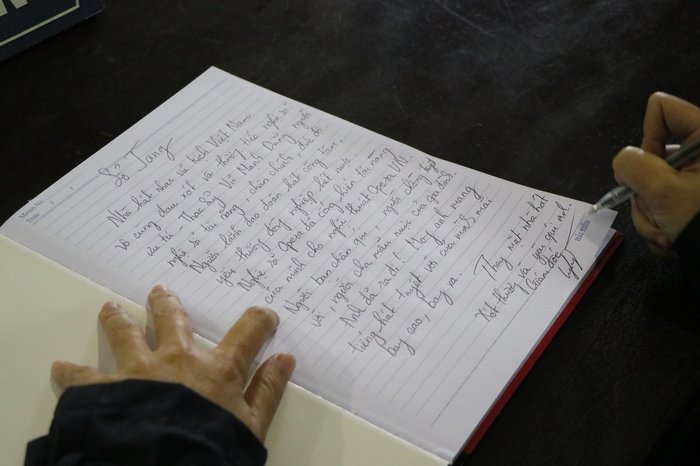 Sổ Tang
Nhà hát nhạc vũ kịch Việt Nam
vô cùng đau xót và thương tiếc nghệ sỹ
ưu tú - Thạc sỹ Vũ Mạnh Dũng, người
nghệ sĩ tài năng, chân chính, đức độ...
Người luôn lao đoàn hát cộng tâm,
yêu thương đồng nghiệp hết mực
Nghệ sĩ Opera đã cống hiến tài năng
của mình cho nghệ thuật Opera VN.
Người bạn thân quý, người chồng tuyệt
vời, người cha mẫu mực của gia đình.
Anh đã ra đi! Mong anh mang
tiếng hát tuyệt vời của mình mãi
bay cao, bay xa.
Thay mặt nhà hát
Xót thương và yêu quí anh.
Giám đốc